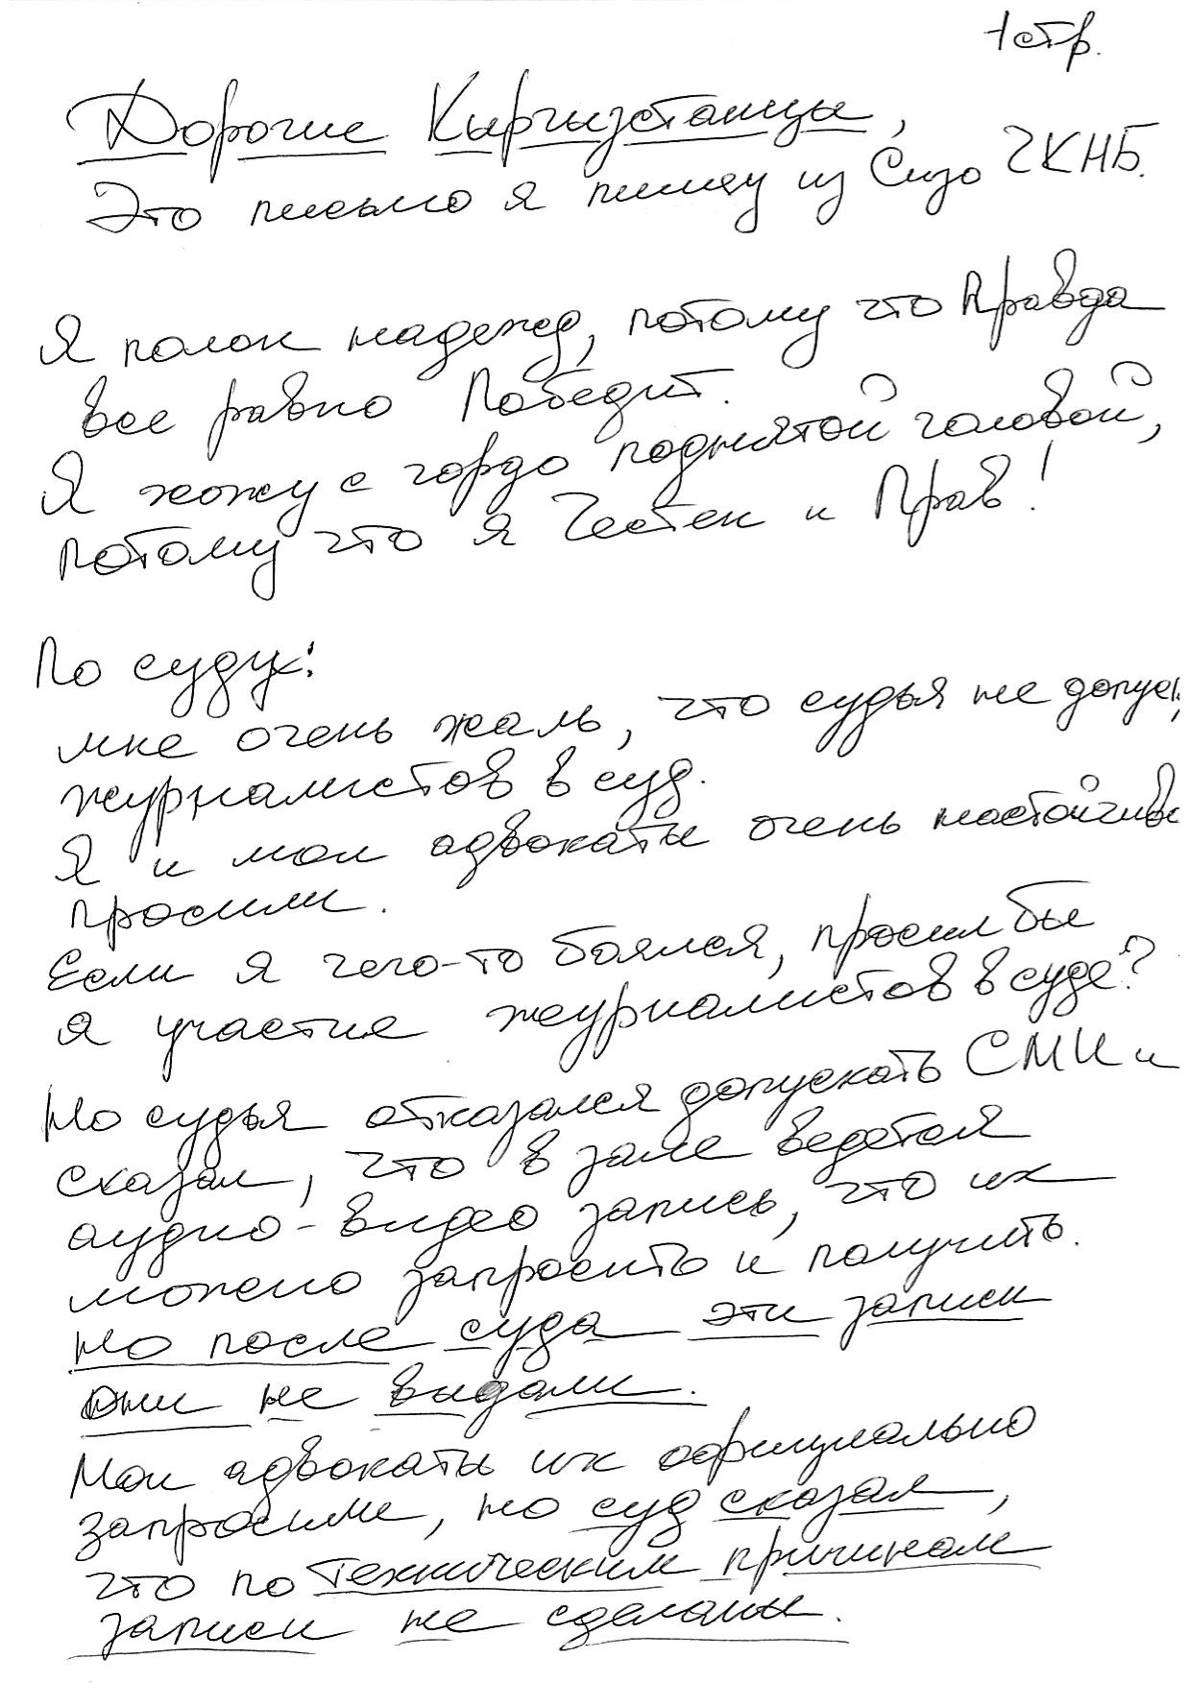 1стр.
Дорогие Кыргызстанцы,
Это письмо я пишу из Сизо ГКНБ.
Я полон надежд, потому что Правда
все равно Победит.
Я хожу с гордо поднятой головой,
потому что я Честен и Прав!
По суду:
мне очень жаль, что судья не допус
журналистов в суд.
Я и мои адвокаты очень настойчиво
просили.
Если я чего-то боялся, просил бы
я участие журналистов в суде?
Но судья отказался допускать СМИ и
сказал, что в зале ведется
аудио-видео запись, что их
можно запросить и получить.
Но после суда эти записи
они не выдали.
Мои адвокаты их официально
запросили, но суд сказал,
что по техническим причинам
записи не сделаны.